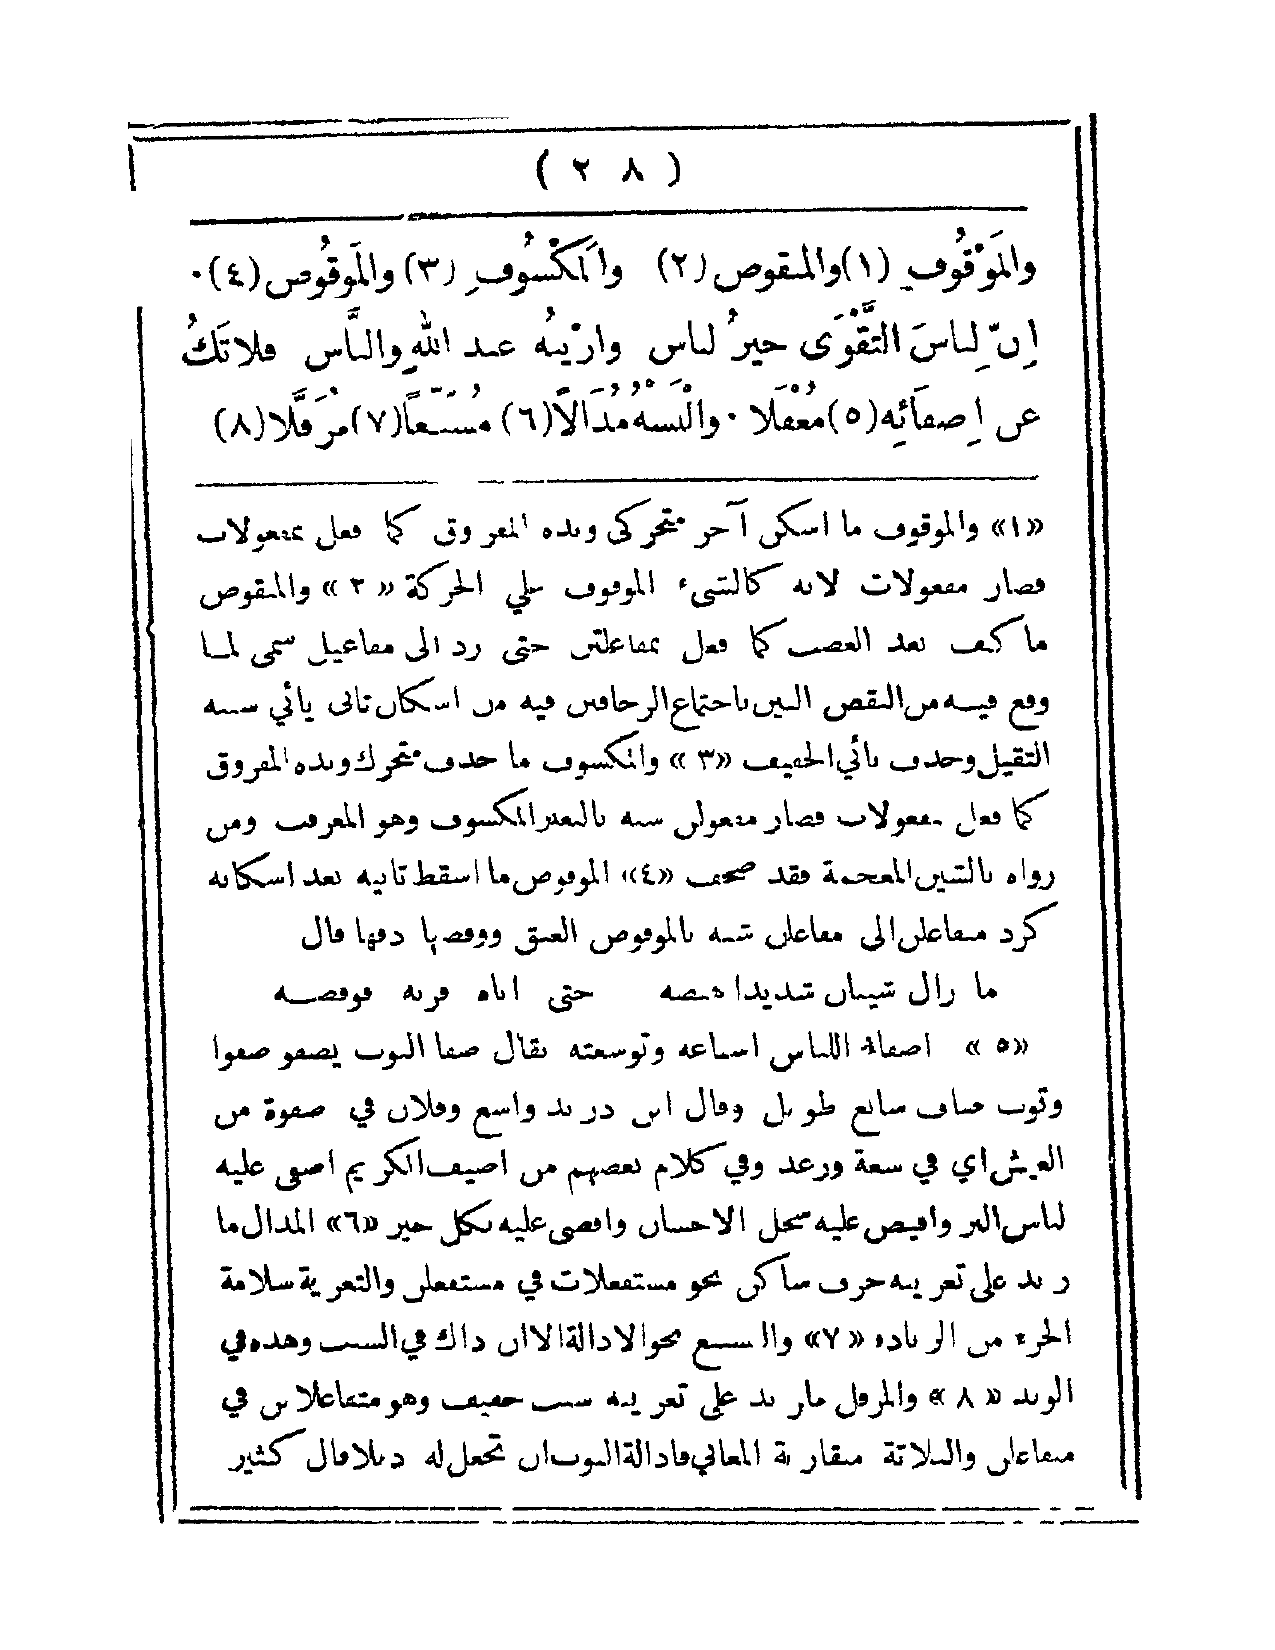 ( ٢ ٨ )
والمَوْقُوفِ (١) والمنقوص (٢) والمَكْسُوفِ (٣) والمَوقُوصِ (٤) ·
اِنّ لِباسَ التَّقْوَى خيرُ لباس وازْينُه عند اللهِ والنَّاس فلا تَكُ
عن اِصفَائِه (٥) مُغْفَلا · والْبَسْهُ مُذَالاً (٦) مُسَبَّغاً (٧) مرَفَّلا (٨)
«١» والموقوف ما اسكن آخر متحركي وتده المفروق كما فعل بمفعولات
فصار مفعولات لانه كالشيء الموقوف على الحركة «٢» والمنقوص
ما كف بعد العصب كما فعل بمفاعلتن حتى رد الى مفاعيل سمي لما
وقع فيه من النقص البين باجتماع الزحافين فيه من اسكان ثاني يأني سببه
الثقيل وحذف ياني الخفيف «٣» والمكسوف ما حذف متحرك وتده المفروق
كما فعل بمفعولات فصار مفعولن شبه بالبعير المكسوف وهو المعرقب ومن
رواه بالشين المعجمة فقد صحف «٤» الموقوص ما اسقط ثانيه بعد اسكانه
كرد متفاعلن الى مفاعلن شبه بالموقوص العنق ووقصها دقها قال
ما زال شيبان شديدا هبصه حتى اتاه قرنه فوقصه
«٥» اصفاء اللباس اسباغه وتوسعته يقال صفا الثوب يصفو صفوا
وثوب صاف سابغ طويل وقال ابن دريد واسع وفلان في صفوة من
العيش اي في سعة ورغد وفي كلام بعضهم من اضيف الكريم اضفى عليه
لباس البر وافيض عليه سجل الاحسان وافضى عليه بكل خير «٦» المذال ما
زيد على تعريته حرف ساكن نحو مستفعلان في مستفعلن والتعرية سلامة
الجزء من الزيادة «٧» والمسبغ نحو الاذالة الا ان ذاك في السبب وهذه في
الوتد «٨» والمرفل ما زيد على تعريته سبب خفيف وهو متفاعلاتن في
متفاعلن والثلاثة متقاربة المعاني فاذالة الثوب ان تجعل له ذيلا قال كثير